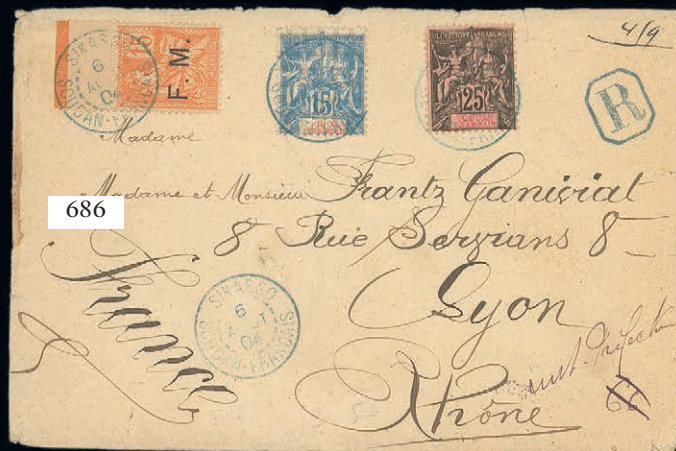 4/9
SIKASSO
6
AOUT
04
SOUDAN-FRANCAIS
15
F. M.
15
25
R
Madame
Madame et Monsieur Frantz Ganiviat
686
8 - Rue Servians 8 -
Lyon
Rhône
France
SIKASSO
6
AOUT
04
SOUDAN-FRANCAIS
66